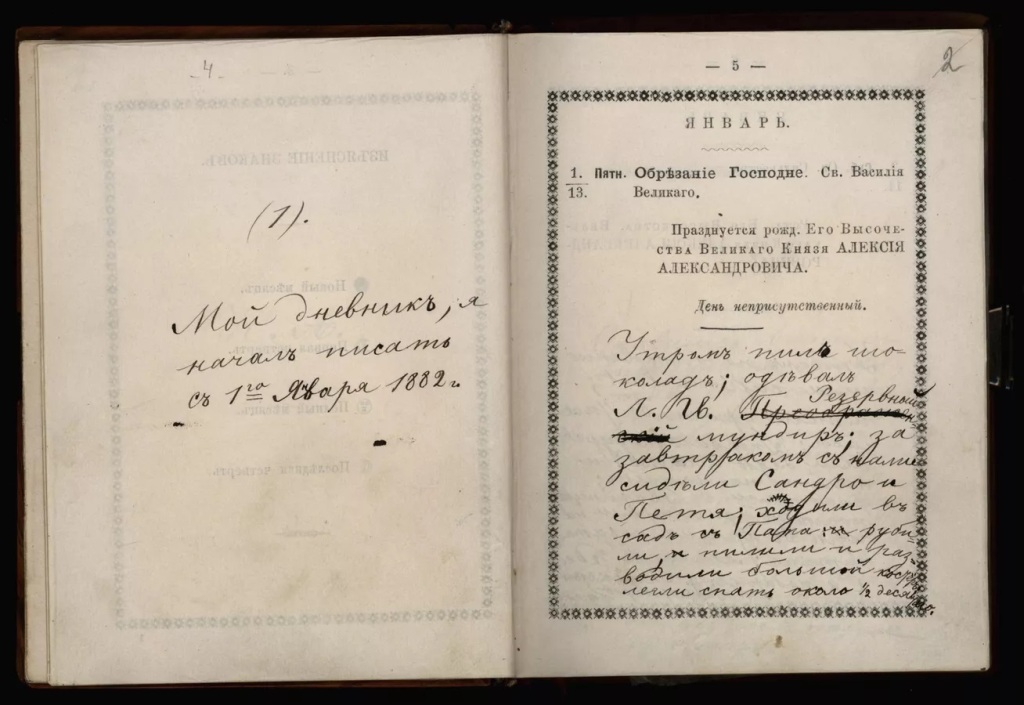 - 4 -
(1).
Мой дневникъ, я
началъ писать
съ 1го Января 1882 г.
— 5 —
2
ЯНВАРЬ.
1. Пятн. Обрѣзаніе Господне. Св. Василія
13. Великаго.
Празднуется рожд. Его Высоче-
ства Великаго Князя АЛЕКСІЯ
АЛЕКСАНДРОВИЧА.
День неприсутственный.
Утромъ пилъ шо-
коладъ; одѣвалъ
Резервный
Л. Гв. Преображен-
скій мундиръ; за
завтракомъ съ нами
сидѣли Сандро и
Петя; ходили въ
садъ съ Папа руби-
ли, и пилили и раз-
водили большой костръ
легли спать около ½ десятаго.